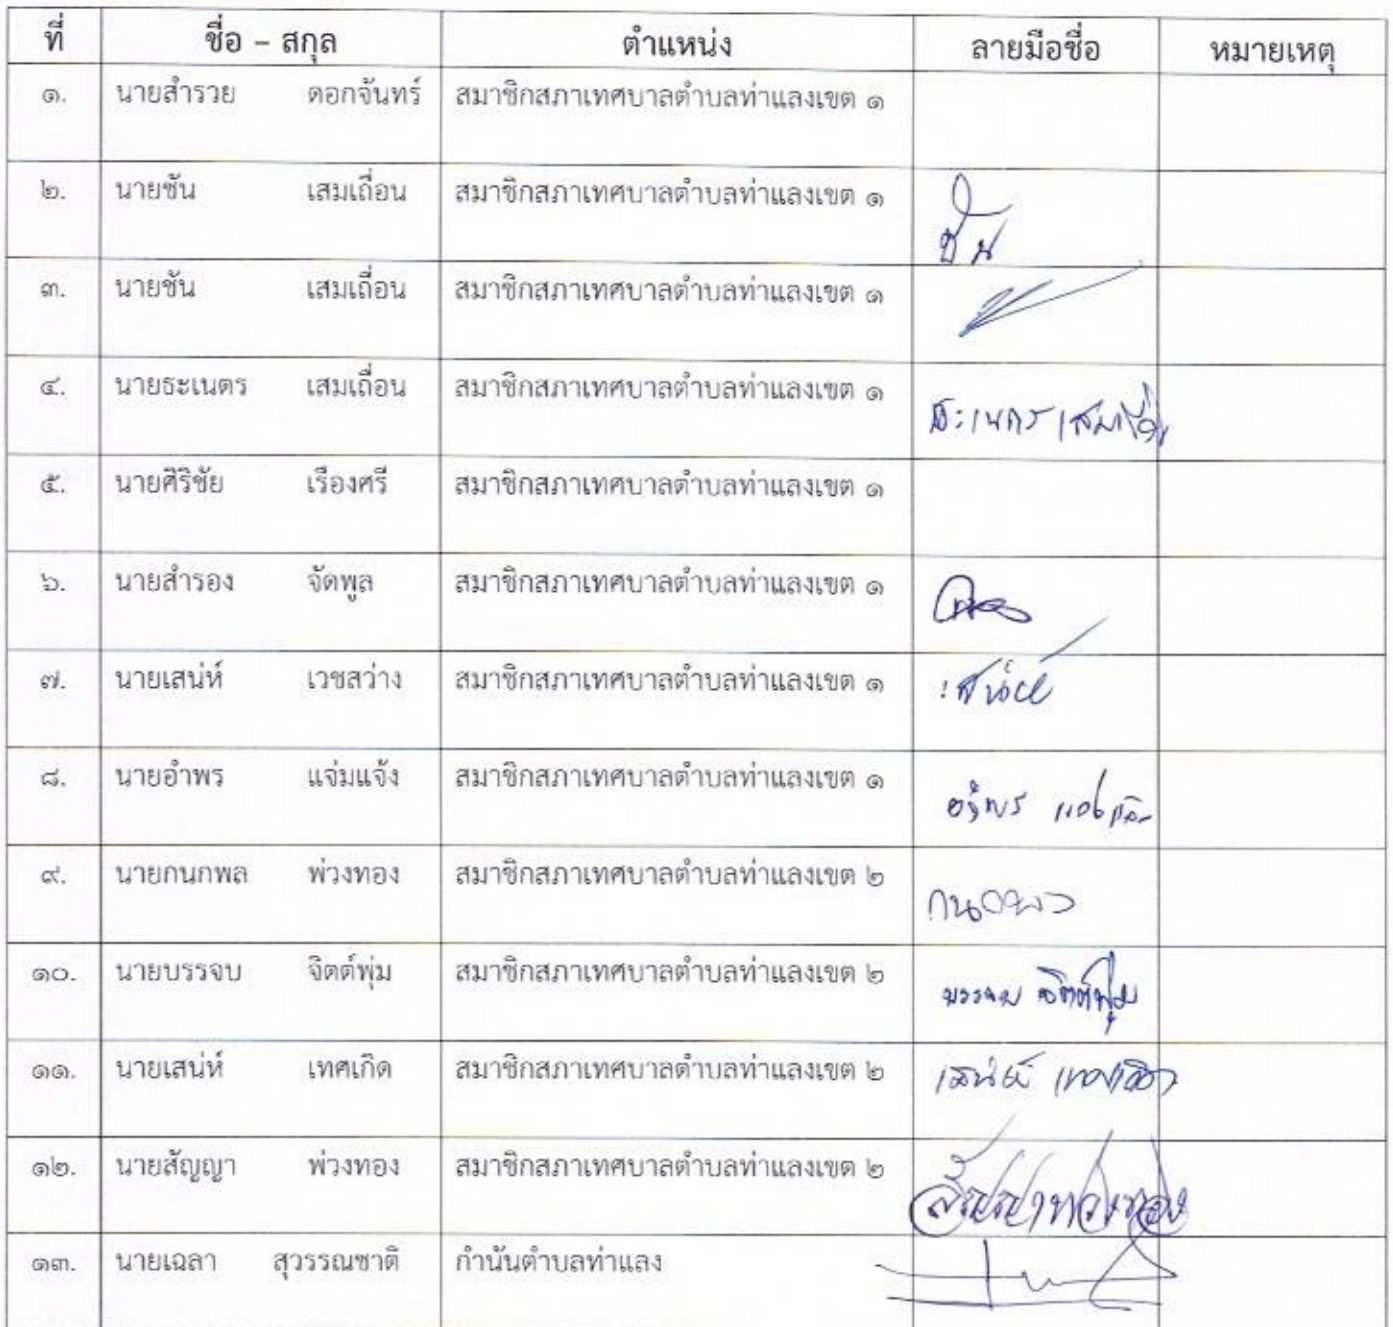 ที่ ชื่อ – สกุล ตำแหน่ง ลายมือชื่อ หมายเหตุ
๑. นายสำรวย ดอกจันทร์ สมาชิกสภาเทศบาลตำบลท่าแลงเขต ๑
๒. นายชัน เสมเถื่อน สมาชิกสภาเทศบาลตำบลท่าแลงเขต ๑
๓. นายชัน เสมเถื่อน สมาชิกสภาเทศบาลตำบลท่าแลงเขต ๑
๔. นายธะเนตร เสมเถื่อน สมาชิกสภาเทศบาลตำบลท่าแลงเขต ๑
๕. นายศิริชัย เรืองศรี สมาชิกสภาเทศบาลตำบลท่าแลงเขต ๑
๖. นายสำรอง จัดพูล สมาชิกสภาเทศบาลตำบลท่าแลงเขต ๑
๗. นายเสน่ห์ เวชสว่าง สมาชิกสภาเทศบาลตำบลท่าแลงเขต ๑ เสน่ห์
๘. นายอำพร แจ่มแจ้ง สมาชิกสภาเทศบาลตำบลท่าแลงเขต ๑ อำพร
๙. นายกนกพล พ่วงทอง สมาชิกสภาเทศบาลตำบลท่าแลงเขต ๒ กนกพล
๑๐. นายบรรจบ จิตต์พุ่ม สมาชิกสภาเทศบาลตำบลท่าแลงเขต ๒ บรรจบ จิตต์พุ่ม
๑๑. นายเสน่ห์ เทศเกิด สมาชิกสภาเทศบาลตำบลท่าแลงเขต ๒ เสน่ห์ เทศเกิด
๑๒. นายสัญญา พ่วงทอง สมาชิกสภาเทศบาลตำบลท่าแลงเขต ๒ สัญญา พ่วงทอง
๑๓. นายเฉลา สุวรรณชาติ กำนันตำบลท่าแลง